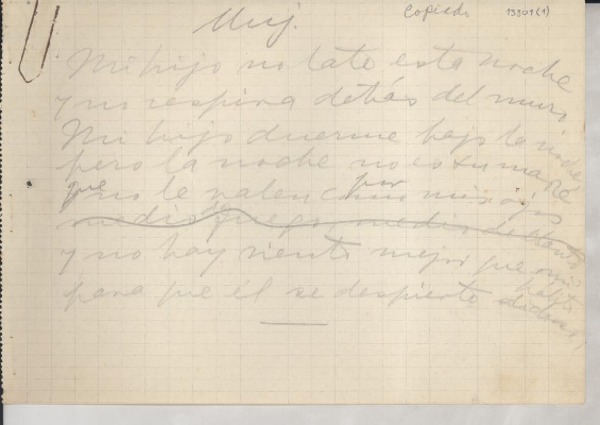 Copiado 13301(1)
Muj.
Mi hijo no late esta noche
y no respira detrás del muro
Mi hijo duerme bajo la noche
pero la noche no es su madre
que no le valen por mis ojos
medio fuego, medio
y no hay viento mejor que mi
para que él se despierte